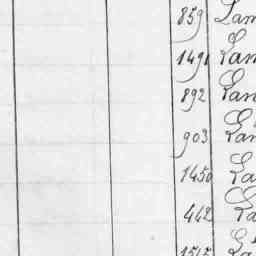 859 Lam
1491 Lam
892 Lan
903 Lan
1450 La
442 La
1515 La